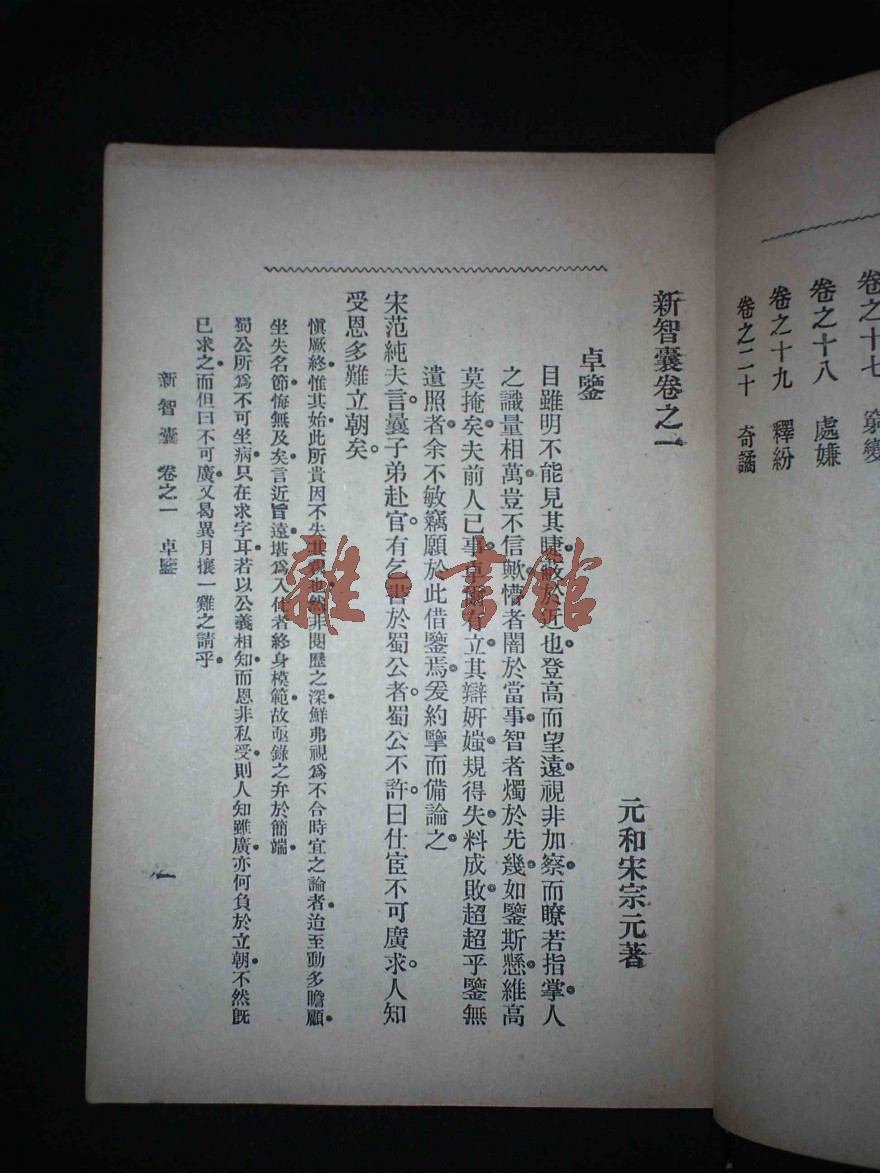 卷之十七 窮變
卷之十八 處嫌
卷之十九 釋紛
卷之二十 奇譎
新智囊卷之一
元和宋宗元著
卓鑒
目雖明不能見其睫蔽於近也登高而望遠視非加察而瞭若指掌人
之識量相萬豈不信歟懵者闇於當事智者燭於先幾如鑒斯懸維高
莫掩矣夫前人已事卓爾有立其辯妍媸規得失料成敗超超乎鑒無
遺照者余不敏竊願於此借鑒焉爰約擧而備論之
宋范純夫言曩子弟赴官有乞書於蜀公者蜀公不許曰仕宦不可廣求人知
受恩多難立朝矣。
愼厥終惟其始此所貴因不失其親也然非閱歷之深鮮弗視爲不合時宜之論者迨至動多瞻顧
坐失名節悔無及矣言近旨遠堪爲入仕者終身模範故亟錄之弁於簡端
蜀公所爲不可坐病只在求字耳若以公義相知而恩非私受則人知雖廣亦何負於立朝不然旣
已求之而但曰不可廣又曷異月攘一雞之請乎
新智囊 卷之一 卓鑒
一
雜·書館